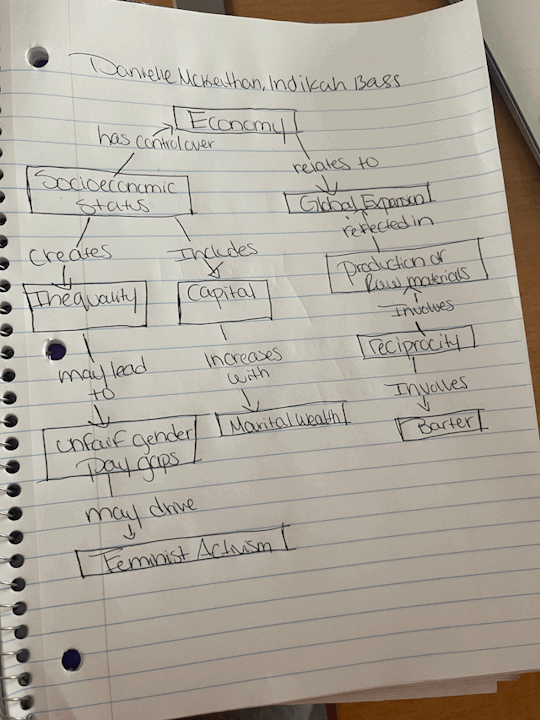 Danielle McKeithan, Indikah Bass
Economy
has control over
relates to
Socioeconomic
Status
Global Expansion
reflected in
creates
Includes
Production of
Raw materials
Inequality
Capital
Involves
reciprocity
may lead
to
Increases
with
Involves
Marital Wealth
Barter
unfair gender
pay gaps
may drive
Feminist Activism